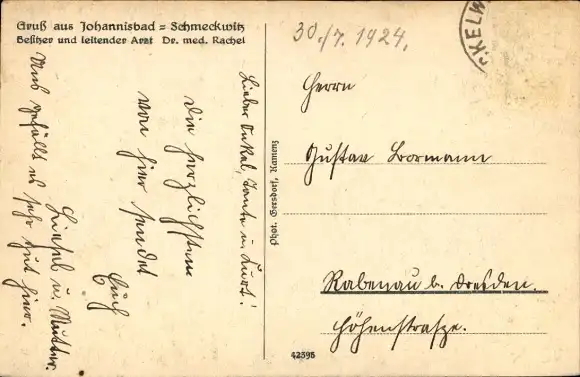 Gruß aus Johannisbad = Schmeckwitz
Besitzer und leitender Arzt Dr. med. Rachel
30./7. 1924.
Lieber Onkel, Tante u. Kurt!
Die herzlichsten
von hier sendet
Euch
Liesel u. Mutter.
Uns gefällt es sehr gut hier.
Phot. Gersdorf, Kamenz
Herrn
Gustav Bormann
Rabenau b. Dresden.
Höhenstraße.
42396